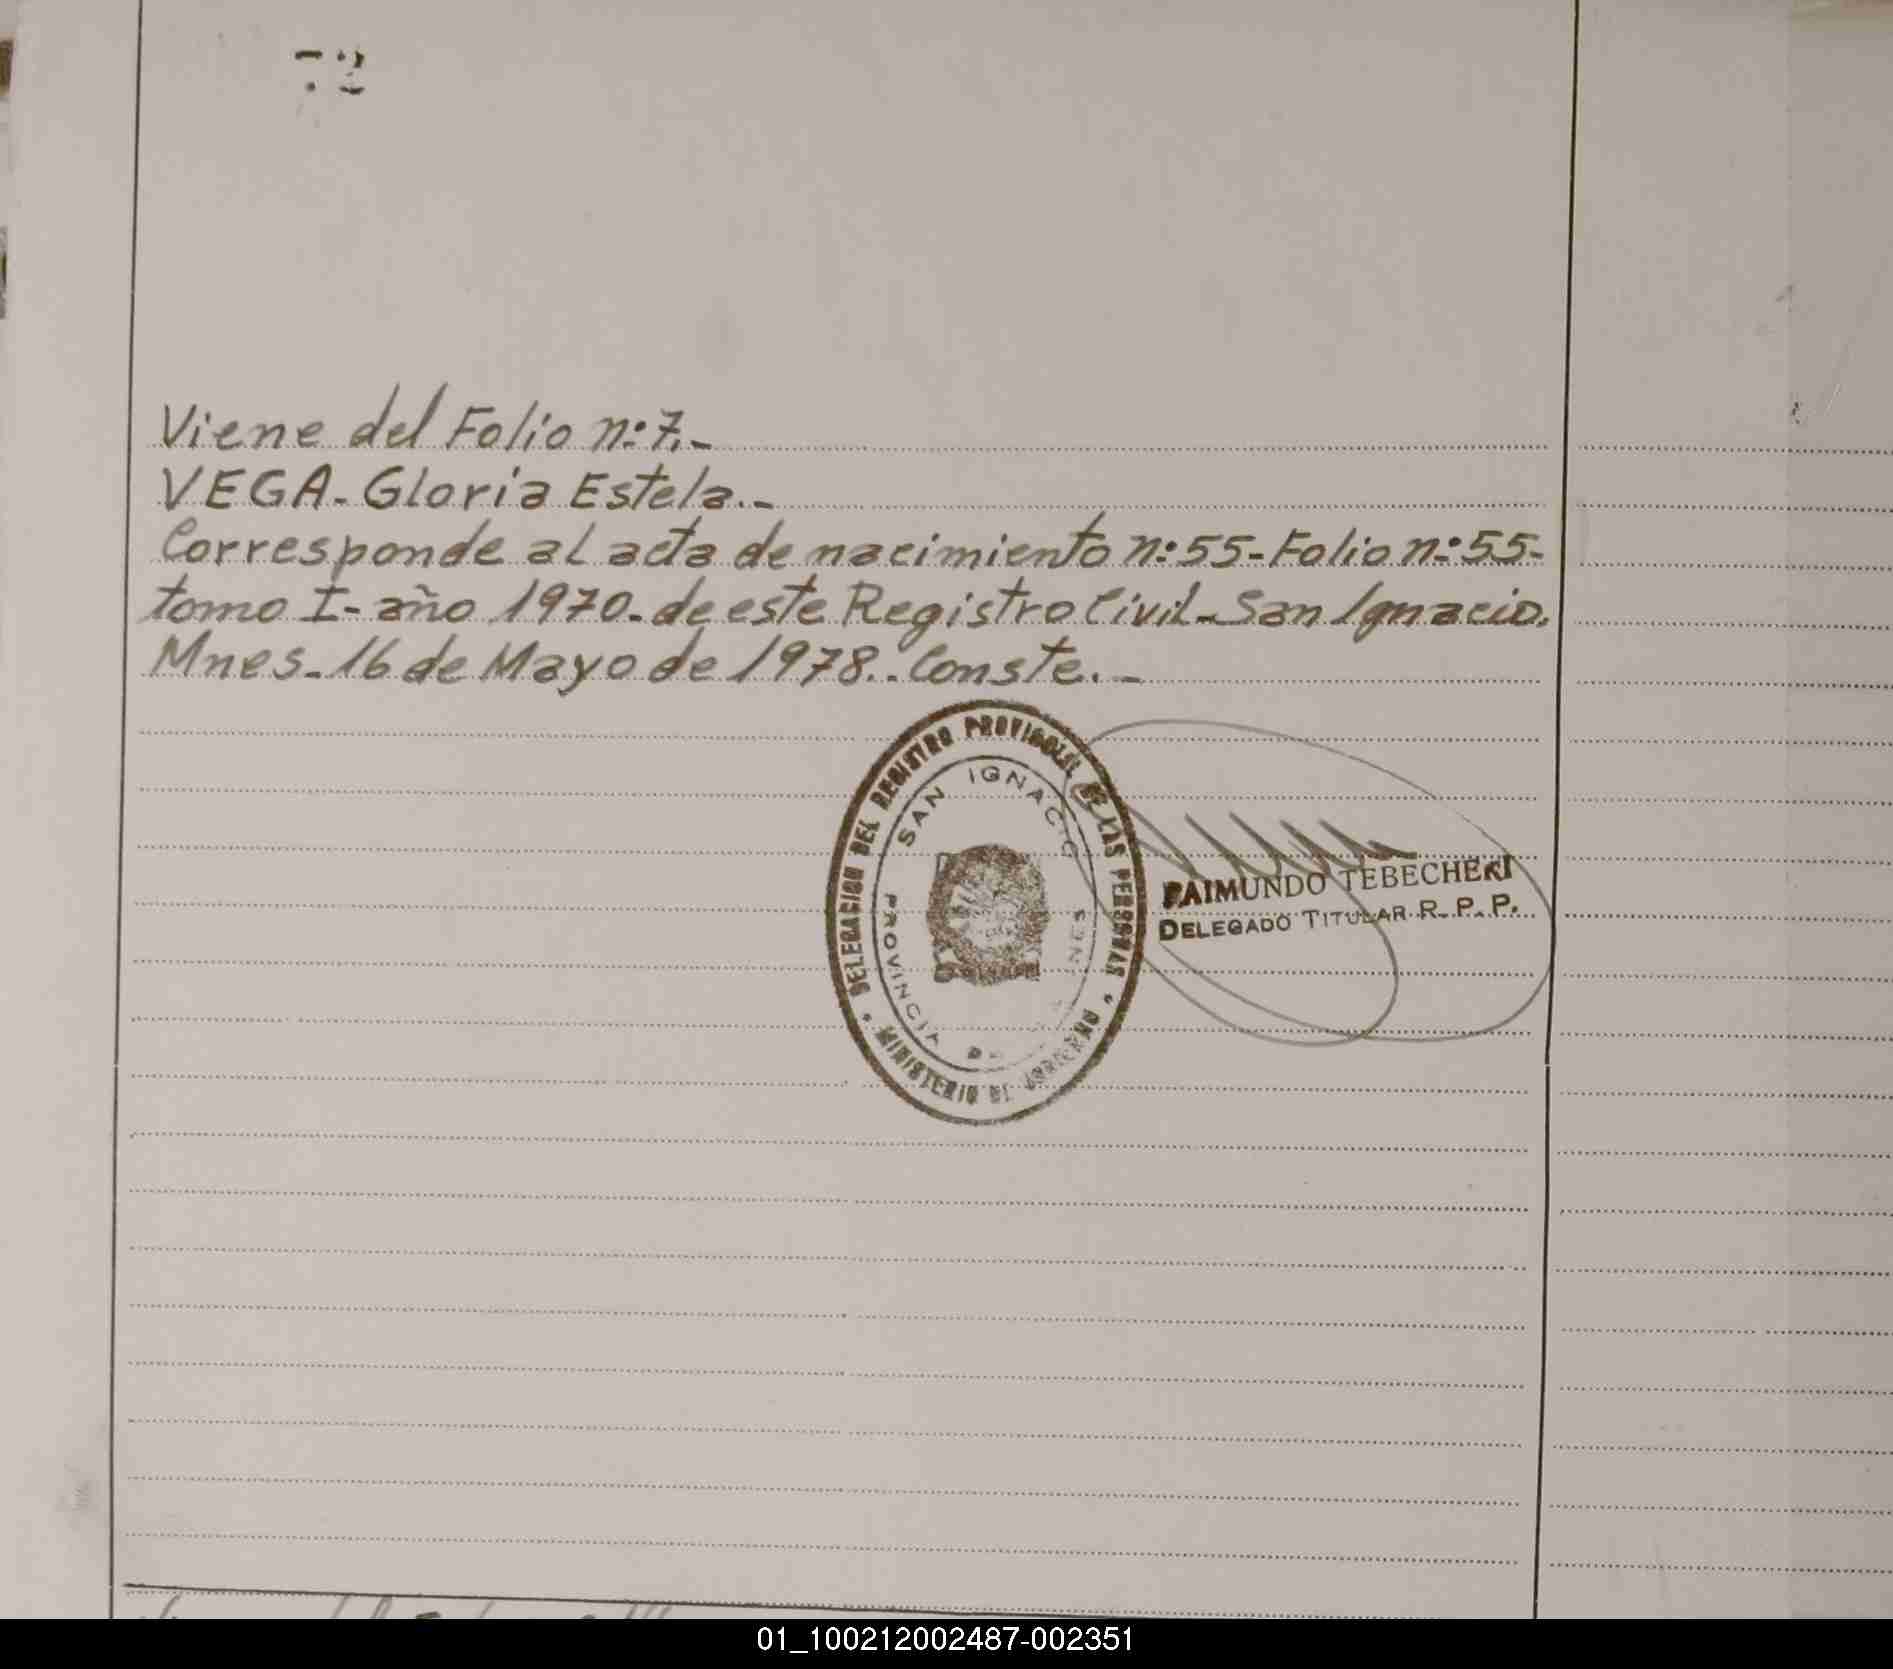 72
Viene del Folio n:7.-
VEGA-Gloria Estela.-
Corresponde al acta de nacimiento n:55-Folio n:55-
tomo I-año 1970-de este Registro Civil-San Ignacio.
Mnes-16 de Mayo de 1978..Conste.-
DELEGACION DEL REGISTRO PROVINCIAL DE LAS PERSONAS
SAN IGNACIO
PROVINCIA
RAIMUNDO TEBECHERI
DELEGADO TITULAR R. P. P.
01_100212002487-002351